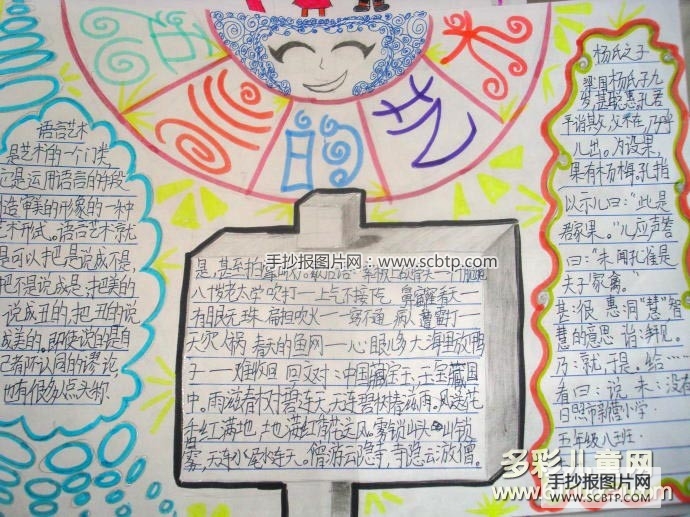 语言的艺术
语言艺术
是艺术的一个门类
它是运用语言的手段
造审美的形象的一种
艺术形式。语言艺术就
是可以把是说成不是,
把不是说成是,把美的
说成丑的,把丑的说
成美的。即使说的是自
己看所认同的谬论,
也有很多人点头称
手抄报图片网:www.scbtp.com
八十岁老太学吹打一上气不接下
大海里放鸭
子一难收回 回文对:中国藏宝玉,玉宝藏国
中。雨滋春树碧连天,天连碧树春滋雨。风送花
香红满地,地满红香花送风。雾锁山头山锁
雾,天连水尾水连天。僧游云隐寺,寺隐云游僧。
杨氏之子
梁国杨氏子九
岁,甚聪惠。孔君
平诣其父,父不在,乃呼
儿出。为设果,
果有杨梅,孔指
以示儿曰:“此是
君家果。”儿应声答
曰:“未闻孔雀是
夫子家禽。”
甚:很 惠:同“慧”智
慧的意思 诣:拜见。
乃:就,于是。给……
看 曰:说 未:没有
日照市新营小学
五年级八班:
多彩儿童网
手抄报图片网
www.scbtp.com